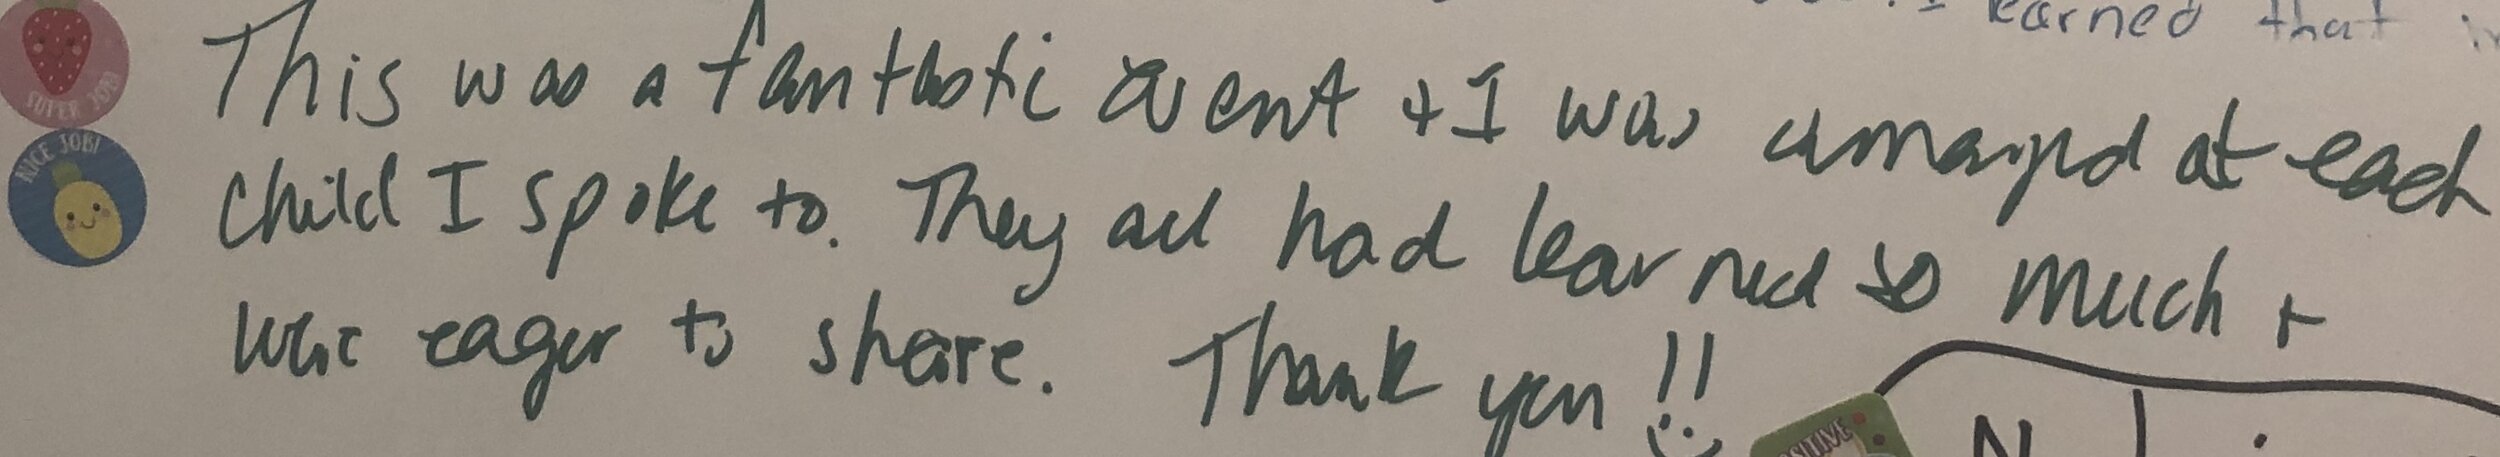 learned that
SUPER JOB!
NICE JOB!
This was a fantastic event + I was amazed at each
child I spoke to. They all had learned so much +
were eager to share. Thank you!!
SITIVE